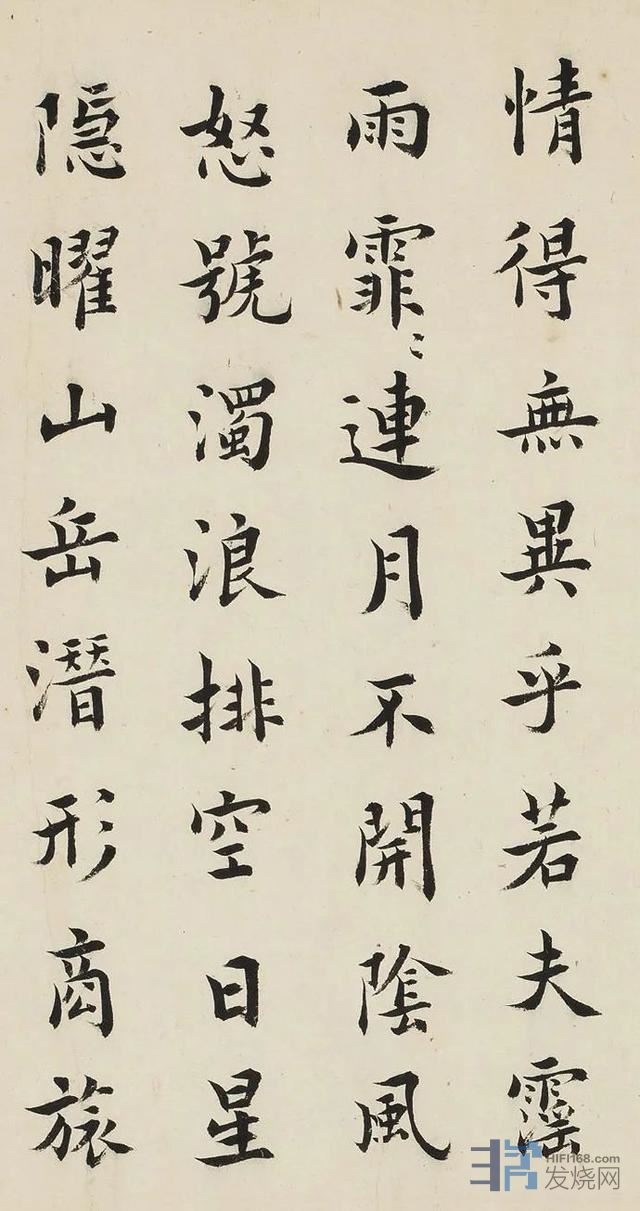 情得無異乎若夫霪
雨霏〻連月不開陰風
怒號濁浪排空日星
隱曜山岳潛形商旅
HIFI168.com
发烧网